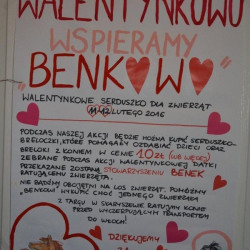 WALENTYNKOWO
WSPIERAMY
„BENKOWO"
WALENTYNKOWE SERDUSZKO DLA ZWIERZĄT
LUTEGO 2016
PODCZAS NASZEJ AKCJI BĘDZIE MOŻNA KUPIĆ SERDUSZKO-
BRELOCZKI, KTÓRE POMAGAŁY OZDABIAĆ DZIECI ORAZ
BRELOKI Z KONIEM W CENIE 10 ZŁ (LUB WIĘCEJ)
ZEBRANE PODCZAS AKCJI WALENTYNKOWEJ DATKI
PRZEKAZANE ZOSTANĄ STOWARZYSZENIU BENEK
RATUJĄCEMU ZWIERZĘTA.
NIE BĄDŹMY OBOJĘTNI NA LOS ZWIERZĄT. POMÓŻMY
„BENKOWU" WYKUPIĆ CHOĆ JEDNEGO ZWIERZAKA
Z TARGU W SKARYSZEWIE RATUJĄC KONIE
PRZED WYCZERPUJĄCYM TRANSPORTEM
DO WŁOCH!
DZIĘKUJEMY